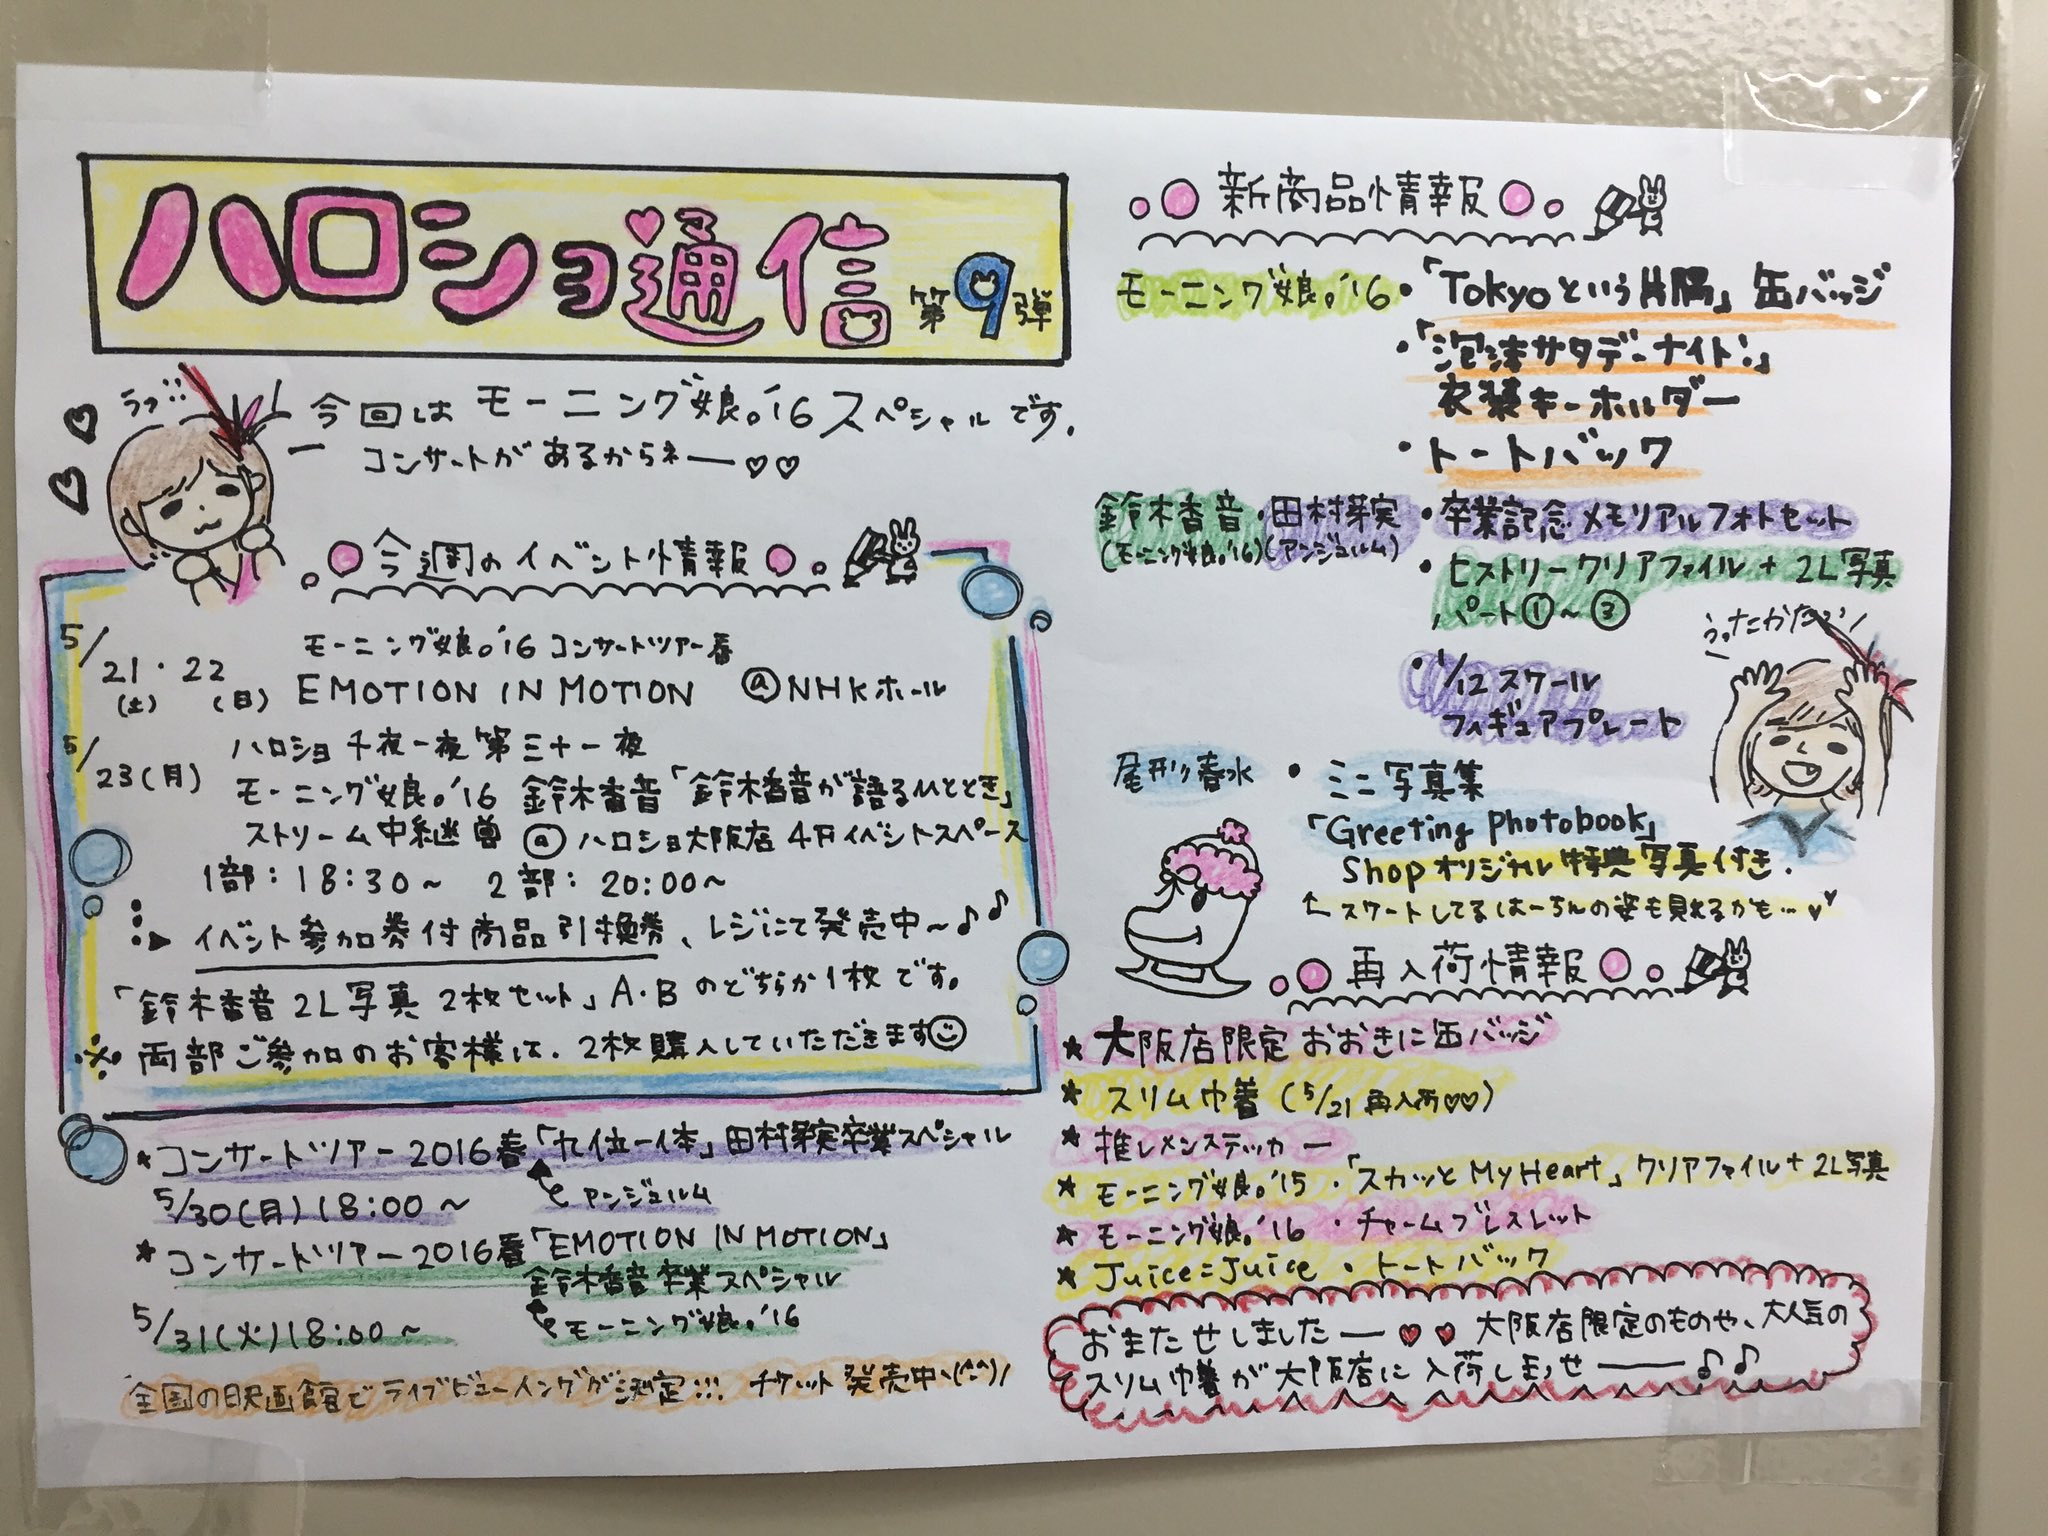 ハロショ通信 第9弾
うっ…
今回はモーニング娘。'16スペシャルです。
コンサートがあるからネー♡♡
今週のイベント情報
5/21(土)・22(日) モーニング娘。'16 コンサートツアー春
EMOTION IN MOTION @NHKホール
5/23(月) ハロショ千夜一夜 第三十一夜
モーニング娘。'16 鈴木香音「鈴木香音が語るひととき」
ストリーム中継 @ハロショ大阪店4Fイベントスペース
1部:18:30〜 2部:20:00〜
イベント参加券付商品引換券、レジにて発売中〜♪♪
「鈴木香音2L写真2枚セット」A・Bのどちらか1枚です。
※両部ご参加のお客様は、2枚購入していただきます
★コンサートツアー2016春「九位一体」田村芽実卒業スペシャル
5/30(月)18:00〜 アンジュルム
★コンサートツアー2016春「EMOTION IN MOTION」
鈴木香音卒業スペシャル
5/31(火)18:00〜 モーニング娘。'16
全国の映画館でライブビューイングが決定!!! チケット発売中\(^^)/
新商品情報
モーニング娘。'16・「Tokyoという片隅」缶バッジ
・「泡沫サタデーナイト!」
衣装キーホルダー
・トートバック
鈴木香音・田村芽実・卒業記念メモリアルフォトセット
(モーニング娘。'16)(アンジュルム)
・ヒストリークリアファイル+2L写真
パート①〜③
うったかたぁっ!
・1/12スケール
フィギュアプレート
尾形春水・ミニ写真集
「Greeting Photobook」
Shopオリジナル特典写真付き.
↑スケートしてるはーちんの姿も見れるかも…♥♥
再入荷情報
★大阪店限定おおきに缶バッジ
★スリム巾着(5/21再入荷♡♡)
★推しメンステッカー
★モーニング娘。'15・「スカッとMy Heart」クリアファイル+2L写真
★モーニング娘。'16・チャームブレスレット
★Juice=Juice・トートバック
おまたせしましたー♥♥大阪店限定のものや、大人気の
スリム巾着が大阪店に入荷しまっせ――♪♪